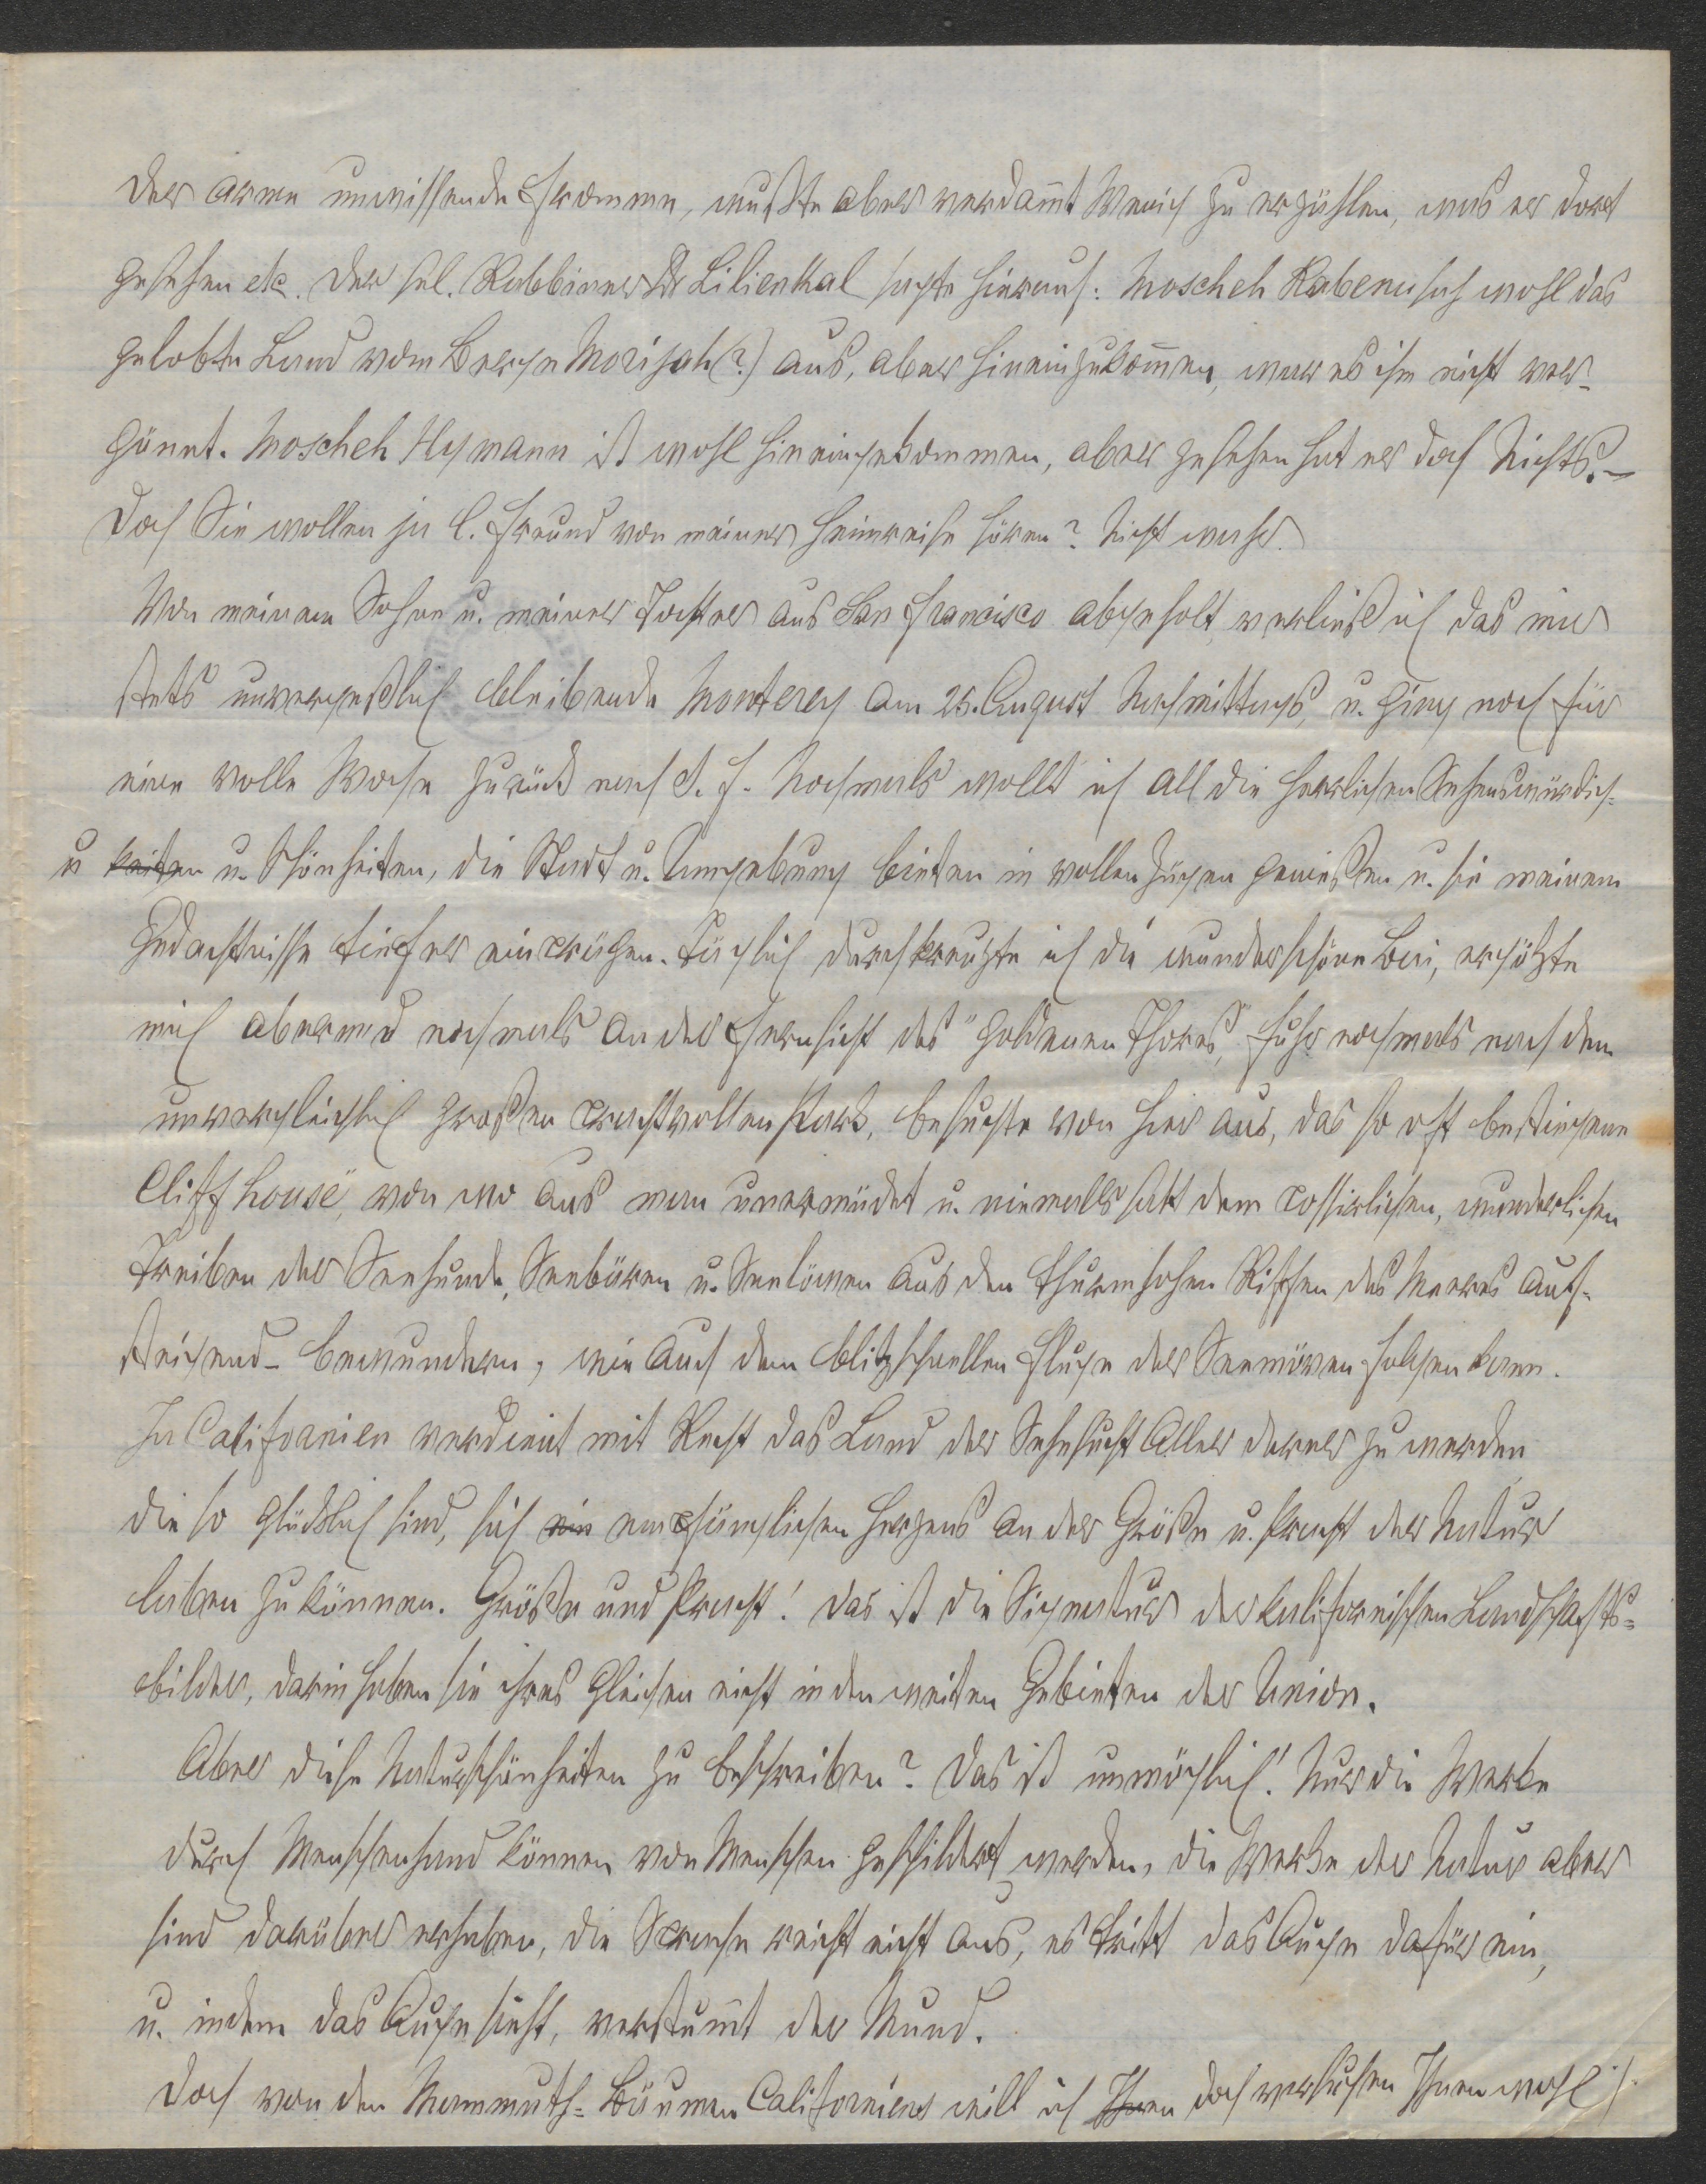 der arme unwissende Fromme, wußte aber verdam̄t Wenig zu erzählen, was er dort
gesehen etc. Der sel. Rabbiner Dr Lilienthal sagte hierauf: Moscheh Rabenu sah wohl das
gelobte Land vom Berge Morijah (?) aus, aber hineinzukom̄en, war es ihm nicht ver-
gönnt. Moscheh Hymann ist wohl hineingekommen, aber gesehen hat er doch Nichts. –
Doch Sie wollen ja l. Freund von meiner Heimreise hören? Nicht wahr.
Von meinem Sohne u. meiner Tochter aus San Francisco abgeholt, verließ ich das mir
stets unvergeßlich bleibende Monterey am 25. August Nachmittags, u. ging noch für
eine volle Woche zurück nach S. F. Nochmals wollt ich all die herrlichen Sehenswürdig-
u keiten u. Schönheiten, die Stadt u. Umgebung bieten in vollen Zügen genießen u. sie meinem
Gedächtnisse tiefer einprägen. Täglich durchkreuzte ich die wunderschöne Bai, ergötzte
mich abermal nochmals an der Fernsicht des "Goldenen Thores," fuhr nochmals nach dem
unvergleichlich großen prachtvollen Park, besuchte von hier aus, das so oft bestiegene
Cliff house", von wo aus man unermüdet u. niemals satt dem possirlichen, wunderlichen
Treiben der Seehunde, Seebären u. Seelöwen aus den thurmhohen Riffen des Meeres auf-
steigend – bewundern, wie auch dem blitzschnellen Fluge der Seemöven folgen kann.
Ja Californien verdient mit Recht das Land der Sehnsucht Aller derer zu werden
die so glücklich sind, sich ein empfänglichen Herzens an der Größe u. Pracht der Natur
laben zu können. Größe und Pracht! das ist die Signatur der kalifornischen Landschafts-
bilder, darin haben sie ihres Gleichen nicht in den weiten Gebieten der Union.
Aber diese Naturschönheiten zu beschreiben? Das ist unmöglich! Nur die Werke
durch Menschenhand können von Menschen geschildert werden, die Werke der Natur aber
sind darüber erhaben, die Sprache reicht nicht aus, es tritt das Auge dafür ein,
u. indem das Auge sieht, verstum̄t der Mund.
Doch von den Mammuth-Bäumen Californiens will ich Ihnen doch versuchen Ihnen wohl